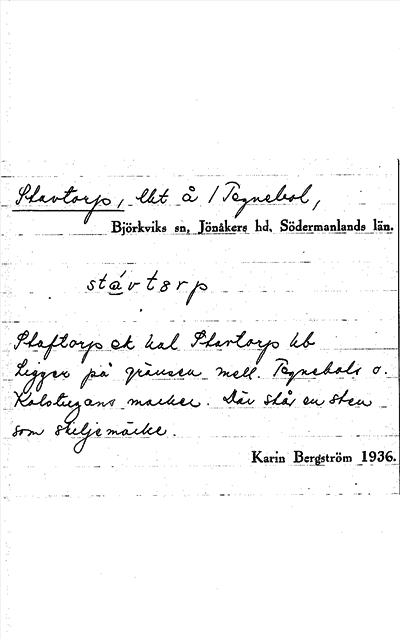 Stavtorp, lht å 1 Tegnebol,
Björkviks sn, Jönåkers hd, Södermanlands län.
stavtorp
Staftorp ek kal Stavtorp hb
Ligger på gränsen mell. Tegnebols o.
Kolstugans marker. Där står en sten
som skiljemärke.
Karin Bergström 1936.